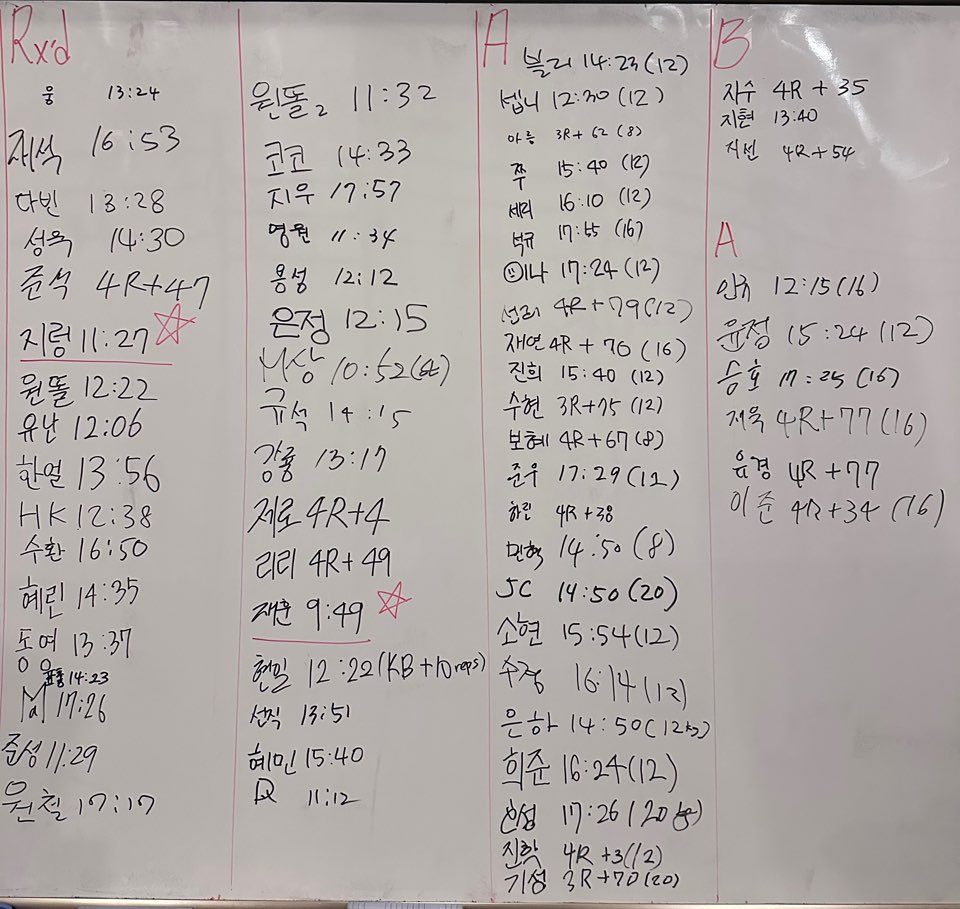 Rx'd
웅 13:24
재석 16:53
다빈 13:28
성욱 14:30
준석 4R+47
지렁 11:27
원똘 12:22
유난 12:06
한얼 13:56
HK 12:38
수환 16:50
혜린 14:35
동여 13:37
14:23
17:26
준성 11:29
원철 17:17
원똘2 11:32
코코 14:33
지우 17:57
명원 11:34
용성 12:12
은정 12:15
M상 10:52
규석 14:15
강룡 13:17
제로 4R+4
리리 4R+49
재훈 9:49
현일 12:22(KB+10reps)
선직 13:51
혜민 15:40
11:12
A
블리 14:23(12)
셉니 12:30(12)
아름 3R+62(8)
쭈 15:40(12)
세리 16:10(12)
벅규 17:55(16)
미나 17:24(12)
선희 4R+79(12)
재연 4R+70(16)
진희 15:40(12)
수현 3R+75(12)
보혜 4R+67(8)
준우 17:29(12)
하린 4R+38
민혁 14:50(8)
JC 14:50(20)
소현 15:54(12)
수정 16:14(12)
은하 14:50(12kg)
희준 16:24(12)
17:26
진학 4R+3(12)
기성 3R+70(20)
B
지수 4R+35
지현 13:40
지빈 4R+54
A
민규 12:15(16)
윤정 15:24(12)
승호 17:25(16)
저욱 4R+77(16)
윤경 4R+77
이준 4R+34(16)